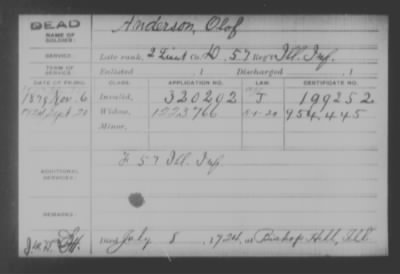 DEAD
NAME OF SOLDIER: Anderson, Olof
SERVICE: Late rank, 2 Lieut Co. D, 57 Reg't Ill. Inf.
TERM OF SERVICE: Enlisted 1 Discharged 1
DATE OF FILING. CLASS. APPLICATION NO. LAW. CERTIFICATE NO.
1879 Nov. 6 Invalid, 320202 J 199252
1924 Sept. 20 Widow, 1223766 5-1-20 954,445
Minor,
ADDITIONAL SERVICES: F 57 Ill. Inf
REMARKS:
Died July 8, 1924, at Bishop Hill, Ill.